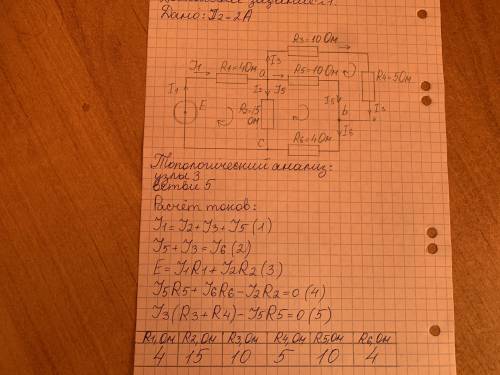 Дано: I2-2А
R3=10 Ом
I3
I1
R1=4Ом
a
R5=10Ом
R4=5Ом
I1
E
I2
I5
R2=15
Ом
I5
I3
b
I6
c
R6=4Ом
Топологический анализ:
узлы 3
ветвей 5
Расчёт токов:
I1=I2+I3+I5 (1)
I5+I3=I6 (2)
E=I1R1+I2R2 (3)
I5R5+I6R6-I2R2=0 (4)
I3(R3+R4)-I5R5=0 (5)
R1,Ом R2,Ом R3,Ом R4,Ом R5,Ом R6,Ом
4 15 10 5 10 4